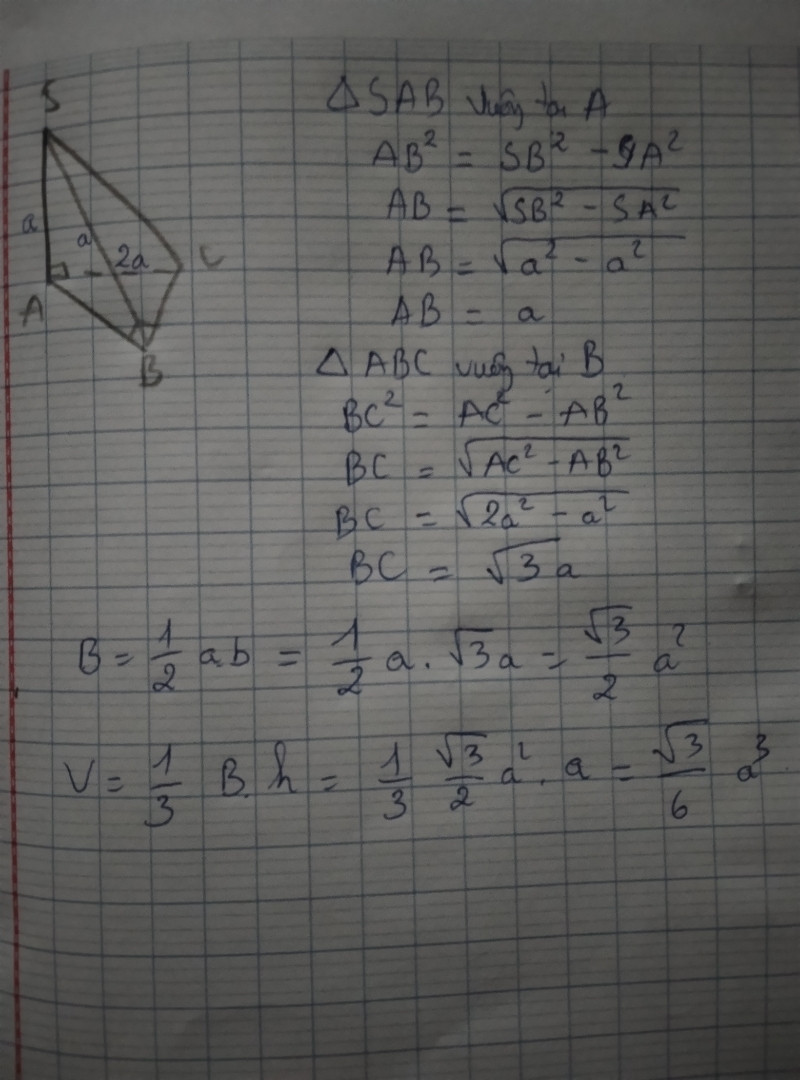 S
a
a
2a
C
A
B
Δ SAB vuông tại A
AB² = SB² - SA²
AB = √SB² - SA²
AB = √a² - a²
AB = a
Δ ABC vuông tại B
BC² = AC² - AB²
BC = √AC² - AB²
BC = √2a² - a²
BC = √3 a
B = 1/2 ab = 1/2 a . √3 a = √3/2 a²
V = 1/3 B. h = 1/3 √3/2 a² . a = √3/6 a³